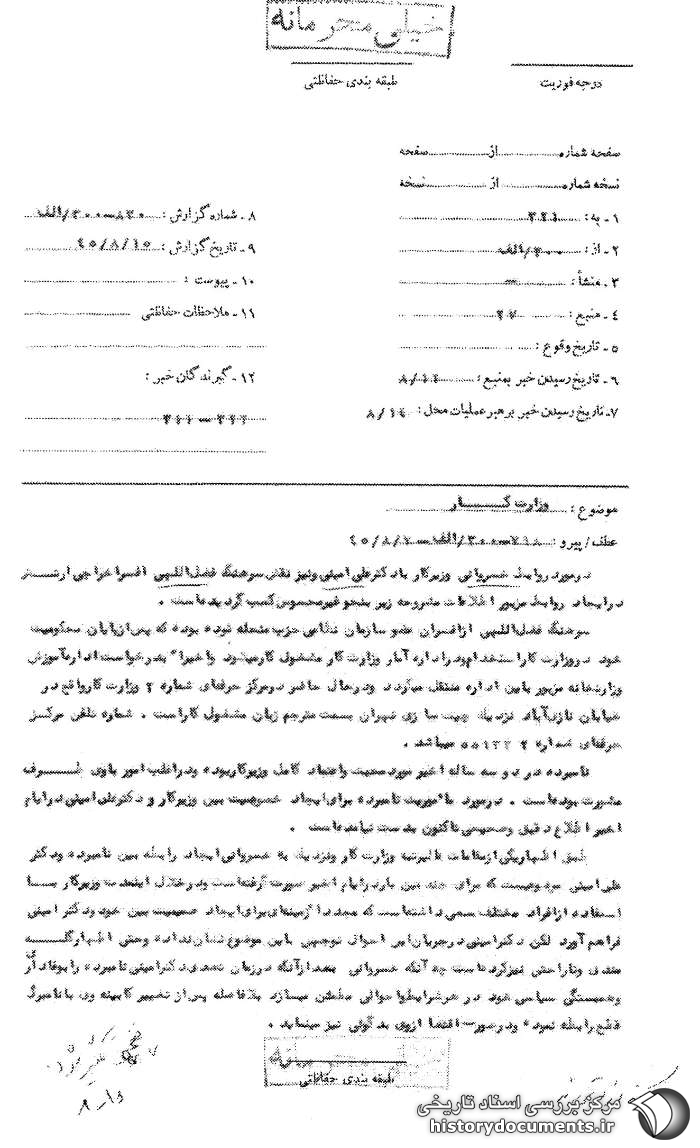 خیلی محرمانه
طبقه بندی حفاظتی
درجه فوریت
صفحه شماره از صفحه
نسخه شماره از نسخه
۱ - به : ۳۲۱
۲ - از : ۳۰۰/الف
۳ - منشأ : —
۴ - منبع : ۲۷
۵ - تاریخ وقوع :
۶ - تاریخ رسیدن خبر بمنبع :
۷ - تاریخ رسیدن خبر برهبر عملیات محل : ۸/۱۴
۸ - شماره گزارش : ۸۲۰-۳۰۰/الف
۹ - تاریخ گزارش : ۴۵/۸/۱۵
۱۰ - پیوست :
۱۱ - ملاحظات حفاظتی
۱۲ - گیرندگان خبر :
موضوع : وزارت کـــار
عطف/پیرو : ۷۱۸-۳۰۰/الف-۴۵/۸/۲
درمورد روابط خسروانی وزیرکار با دکترعلی امینی و نیز نقش سرهنگ فضل‌اللهی افسر اخراجی ارتش
در ایجاد روابط مزبور اطلاعات مشروحه زیر بنحو غیرمحسوس کسب گردیده‌است .
سرهنگ فضل‌اللهی از افسران عضو سازمان نظامی حزب منحله توده بوده که پس از پایان محکومیت
خود در وزارت کار استخدام و در اداره آمار وزارت کار مشغول کار میشود واخیرا" بدرخواست اداره آموزش
وزارتخانه مزبور باین اداره منتقل میگردد ودرحال حاضر درمرکز حرفه‌ای شماره ۲ وزارت کار واقع در
خیابان نازی‌آباد نزدیک چیت سازی تهران بسمت مترجم زبان مشغول کاراست . شماره تلفن مرکز
حرفه‌ای شماره ۲ میباشد .
نامبرده در دو سه ساله اخیر مورد محبت واعتماد کامل وزیرکاربوده ودراغلب امور باوی طـــرف
مشورت بوده‌است . درمورد ماموریت نامبرده برای ایجاد خصوصیت بین وزیرکار و دکترعلی امینی درایام
اخیر اطلاع دقیق وصحیحی تاکنون بدست نیامده‌است .
طبق اظهاریکی ازمقامات عالیرتبه وزارت کار ونزدیک به خسروانی ایجاد رابطه بین نامبرده ودکتر
علی امینی موضوعیست که برای چند مین بار درایام اخیر صورت گرفته‌است ودرخلال اینمدت وزیرکار بـــا
استفاده ازافراد مختلف سعی داشته‌است که مجددا زمینه‌ای برای ایجاد صمیمیت بین خود ودکتر امینی
فراهم آورد لکن دکترامینی درجریان این احوال توجهی باین موضوع نشان نداده وحتی اظهارگلـــه
مندی وناراحتی نیزکرده‌است چه آنکه خسروانی بعد ازآنکه درزمان تصدی دکترامینی نامبرده را بوفاداری
وهمبستگی سیاسی خود در هرشرایط واحوالی مطمئن میسازد بلافاصله پس از تغییر کابینه وی با نامبرده
قطع رابطه نموده ودرصورت اقتضا ازوی بدگوئی نیز مینماید .
خیلی محرمانه
طبقه بندی حفاظتی
مرکز بررسی اسناد تاریخی
historydocuments.ir